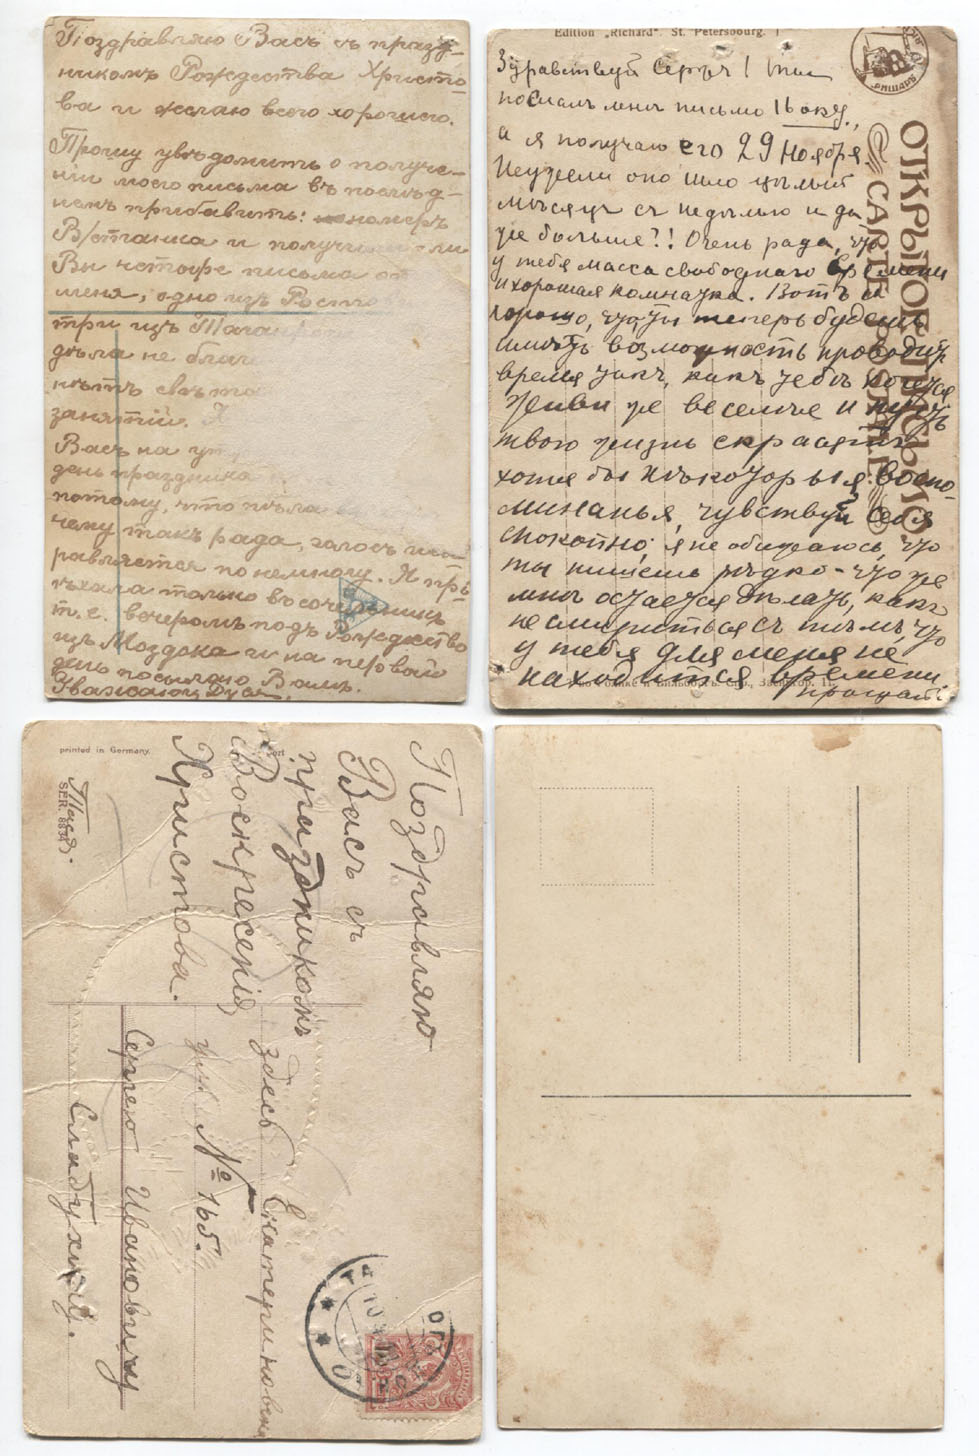 Поздравляю Васъ съ празд-
никомъ Рождества Христо-
ва и желаю всего хорошого.
Прошу увѣдомить о получе-
нии моего письма въ послѣд-
немъ прибавить: номеръ
В/станса и получили-ли
Вы четыре письма от
меня, одно изъ Ростов
три изъ Таганр
дѣла не благ
нѣтъ
занятій.
Васъ на
день праздника
потому, что пѣла
чему такъ рада, голосъ
равляется понемногу. Я прі-
ѣхала только въ сочельникъ
т. е. вечеромъ подъ Рождество
изъ Моздока и на первый
день посылаю Вамъ.
Уважающ. Дуся.
Edition „Richard". St. Petersbourg.
Здравствуй Сергѣй! Ты
послалъ мнѣ письмо 16 окт.,
а я получаю его 29 Ноября.
Неужели оно шло цѣлый
мѣсяцъ съ недѣлею и да
же больше?! Очень рада, что
у тебя масса свободнаго времени
и хорошая комнатка. Вотъ и
хорошо, что ты теперь будешь
имѣть возможность проводить
время такъ, какъ тебѣ хочется
Живи же веселѣе и пусть
твою жизнь скрасятъ
хотя бы нѣкоторыя воспо-
минанья, чувствуй себя
спокойно, я не обижаюсь, что
ты пишешь рѣдко - что же
мнѣ остается дѣлать, какъ
не смириться съ тѣмъ, что
у тебя для меня не
находится времени
Прощай
ОТКРЫТОЕ ПИСЬМО
CARTE POSTALE
РИШАРЪ
printed in Germany.
SER. 8834
Тася.
Поздравляю
Васъ съ
праздникомъ
Воскресенія
Христова.
здесь Екатериновская
ул. № 165.
Сергею Ивановичу
Слабухину.